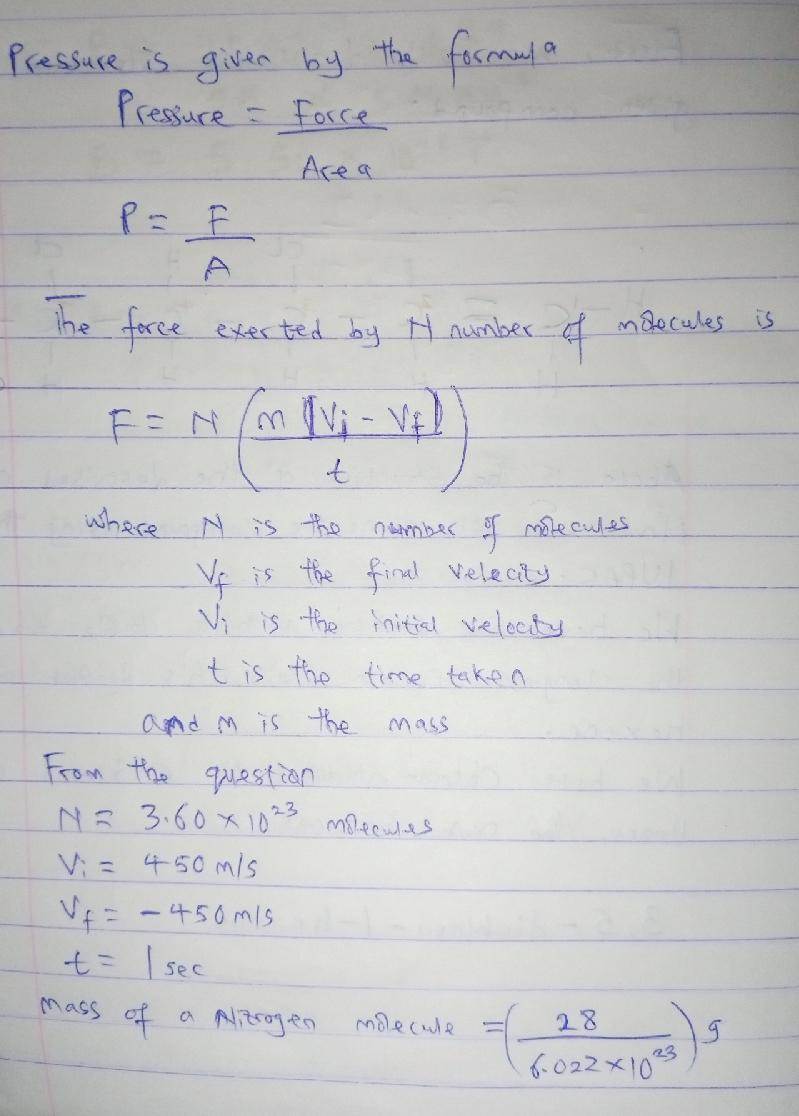 Pressure is given by the formula
Pressure = Force
Area
P = F
A
The force exerted by N number of molecules is
F = N (m [Vi - Vf])
t
where N is the number of molecules
Vf is the final velocity
Vi is the initial velocity
t is the time taken
and m is the mass
From the question
N = 3.60 x 10²³ molecules
Vi = 450 m/s
Vf = - 450 m/s
t = 1 sec
Mass of a Nitrogen molecule = (28) g
6.022 x 10²³